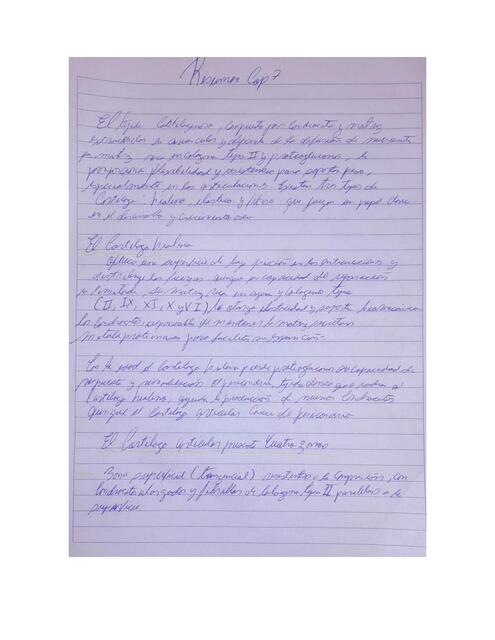 Resumen Cap 7
El tejido Cartilaginoso, compuesto por Condrocitos y matriz
extracelular, es avascular y depende de la difusión de nutrientes
su matriz rica en colágeno tipo II y proteoglucanos, le
proporciona flexibilidad y resistencia para soportar peso,
especialmente en las articulaciones, existen tres tipos de
Cartílago hialino, elástico y fibroso que juegan un papel clave
en el desarrollo y crecimiento óseo
El Cartílago hialino
ofrece una superficie de baja fricción en las articulaciones y
distribuye las fuerzas aunque su capacidad de reparación
es limitada. Su matriz, rica en agua y colágeno tipo
(II, IX, XI, X y VI) le otorga elasticidad y soporte biomecánico
los condrocitos, responsables de mantener la matriz, secretan
metaloproteinasas para facilitar su expansión.
Con la edad el Cartílago hialino pierde proteoglucanos su capacidad de
respuesta y remodelación. El pericondrio, tejido denso que rodea al
Cartílago hialino, ayuda la producción de nuevos condrocitos
aunque el Cartílago articular Carece de pericondrio
El Cartílago articular presenta Cuatro zonas
Zona superficial (tangencial) resistente a la Compresión, con
Condrocitos alargados y fibrillas de Colágeno tipo II paralelas a la
superficie.